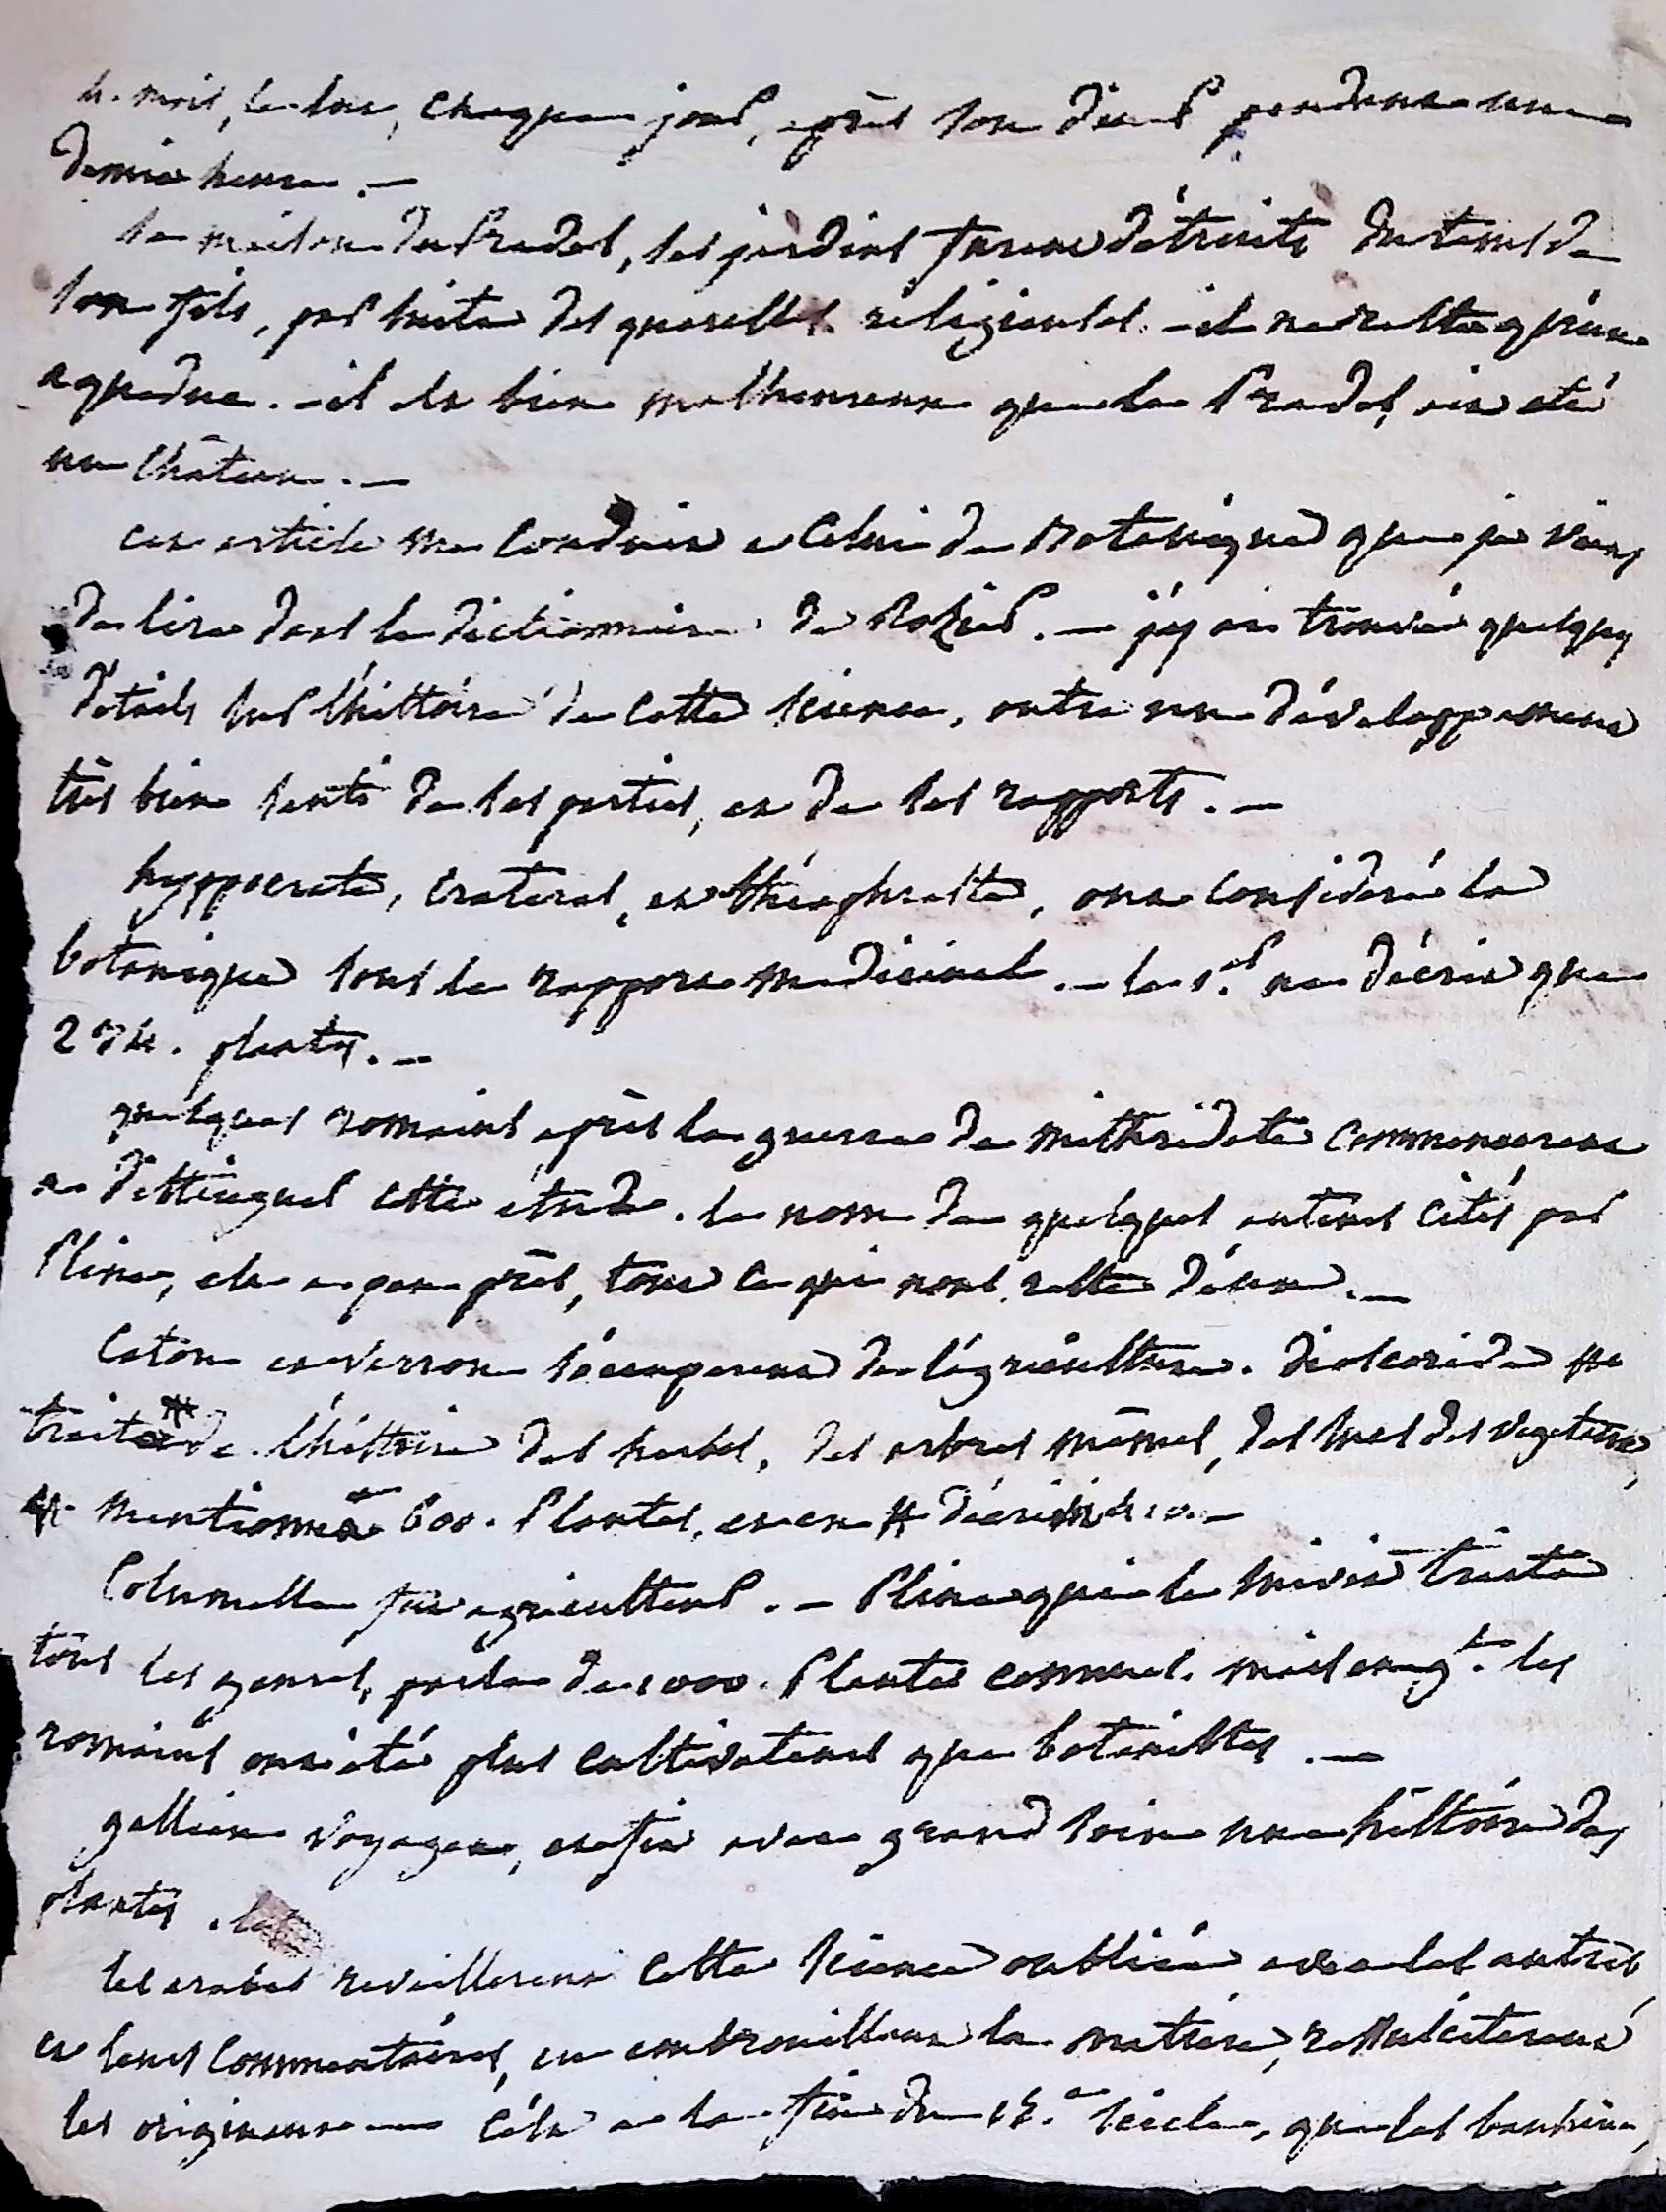 4. mois, se lut, chaque jour, après son diner pendant une
demie heure. —
la maison du Pradel, les jardins furent détruits du tems de
son fils, par suite des querelles religieuses. - il ne reste qu'un
aqueduc. - il est bien malheureux que le Pradel, ait été
un château. —
cet article me conduit a celui de Botanique que je viens
de lire dans le dictionnaire de Rozier. — j'y ai trouvé quelques
détails sur l'histoire de cette science, outre un développement
très bien senti de ses parties, et de ses rapports. —
hyppocrate, crateras, et théophraste, ont considéré la
botanique sous le rapport médicinal. — le 1.er ne décrit que
274. plantes. —
quelques romains après la guerre de mithridate commencerent
a distinguer cette étude. le nom de quelques auteurs cités par
Pline, est a peu près, tout ce qui nous reste d'eux. —
Caton et varron s'occuperent de l'agriculture. dioscoride
traita de l'histoire des herbes, des arbres mêmes, des sucs des vegetaux,
mentionna 600. Plantes, et en décrivit 410. —
Columelle fut agriculteur. — Pline qui le suivit traita
tous les genres, parla de 1000. Plantes connues. mais en g.al les
romains ont été plus cultivateurs que botanistes. —
gallien voyagea, et fit avec grand soin une histoire des
plantes.
les arabes reveillerent cette science oubliée avec les autres,
et leurs commentaires, en embrouillant la matiere, ressusciterent
les originaux — c'est a la fin du 15.e siècle, que les bauhin,